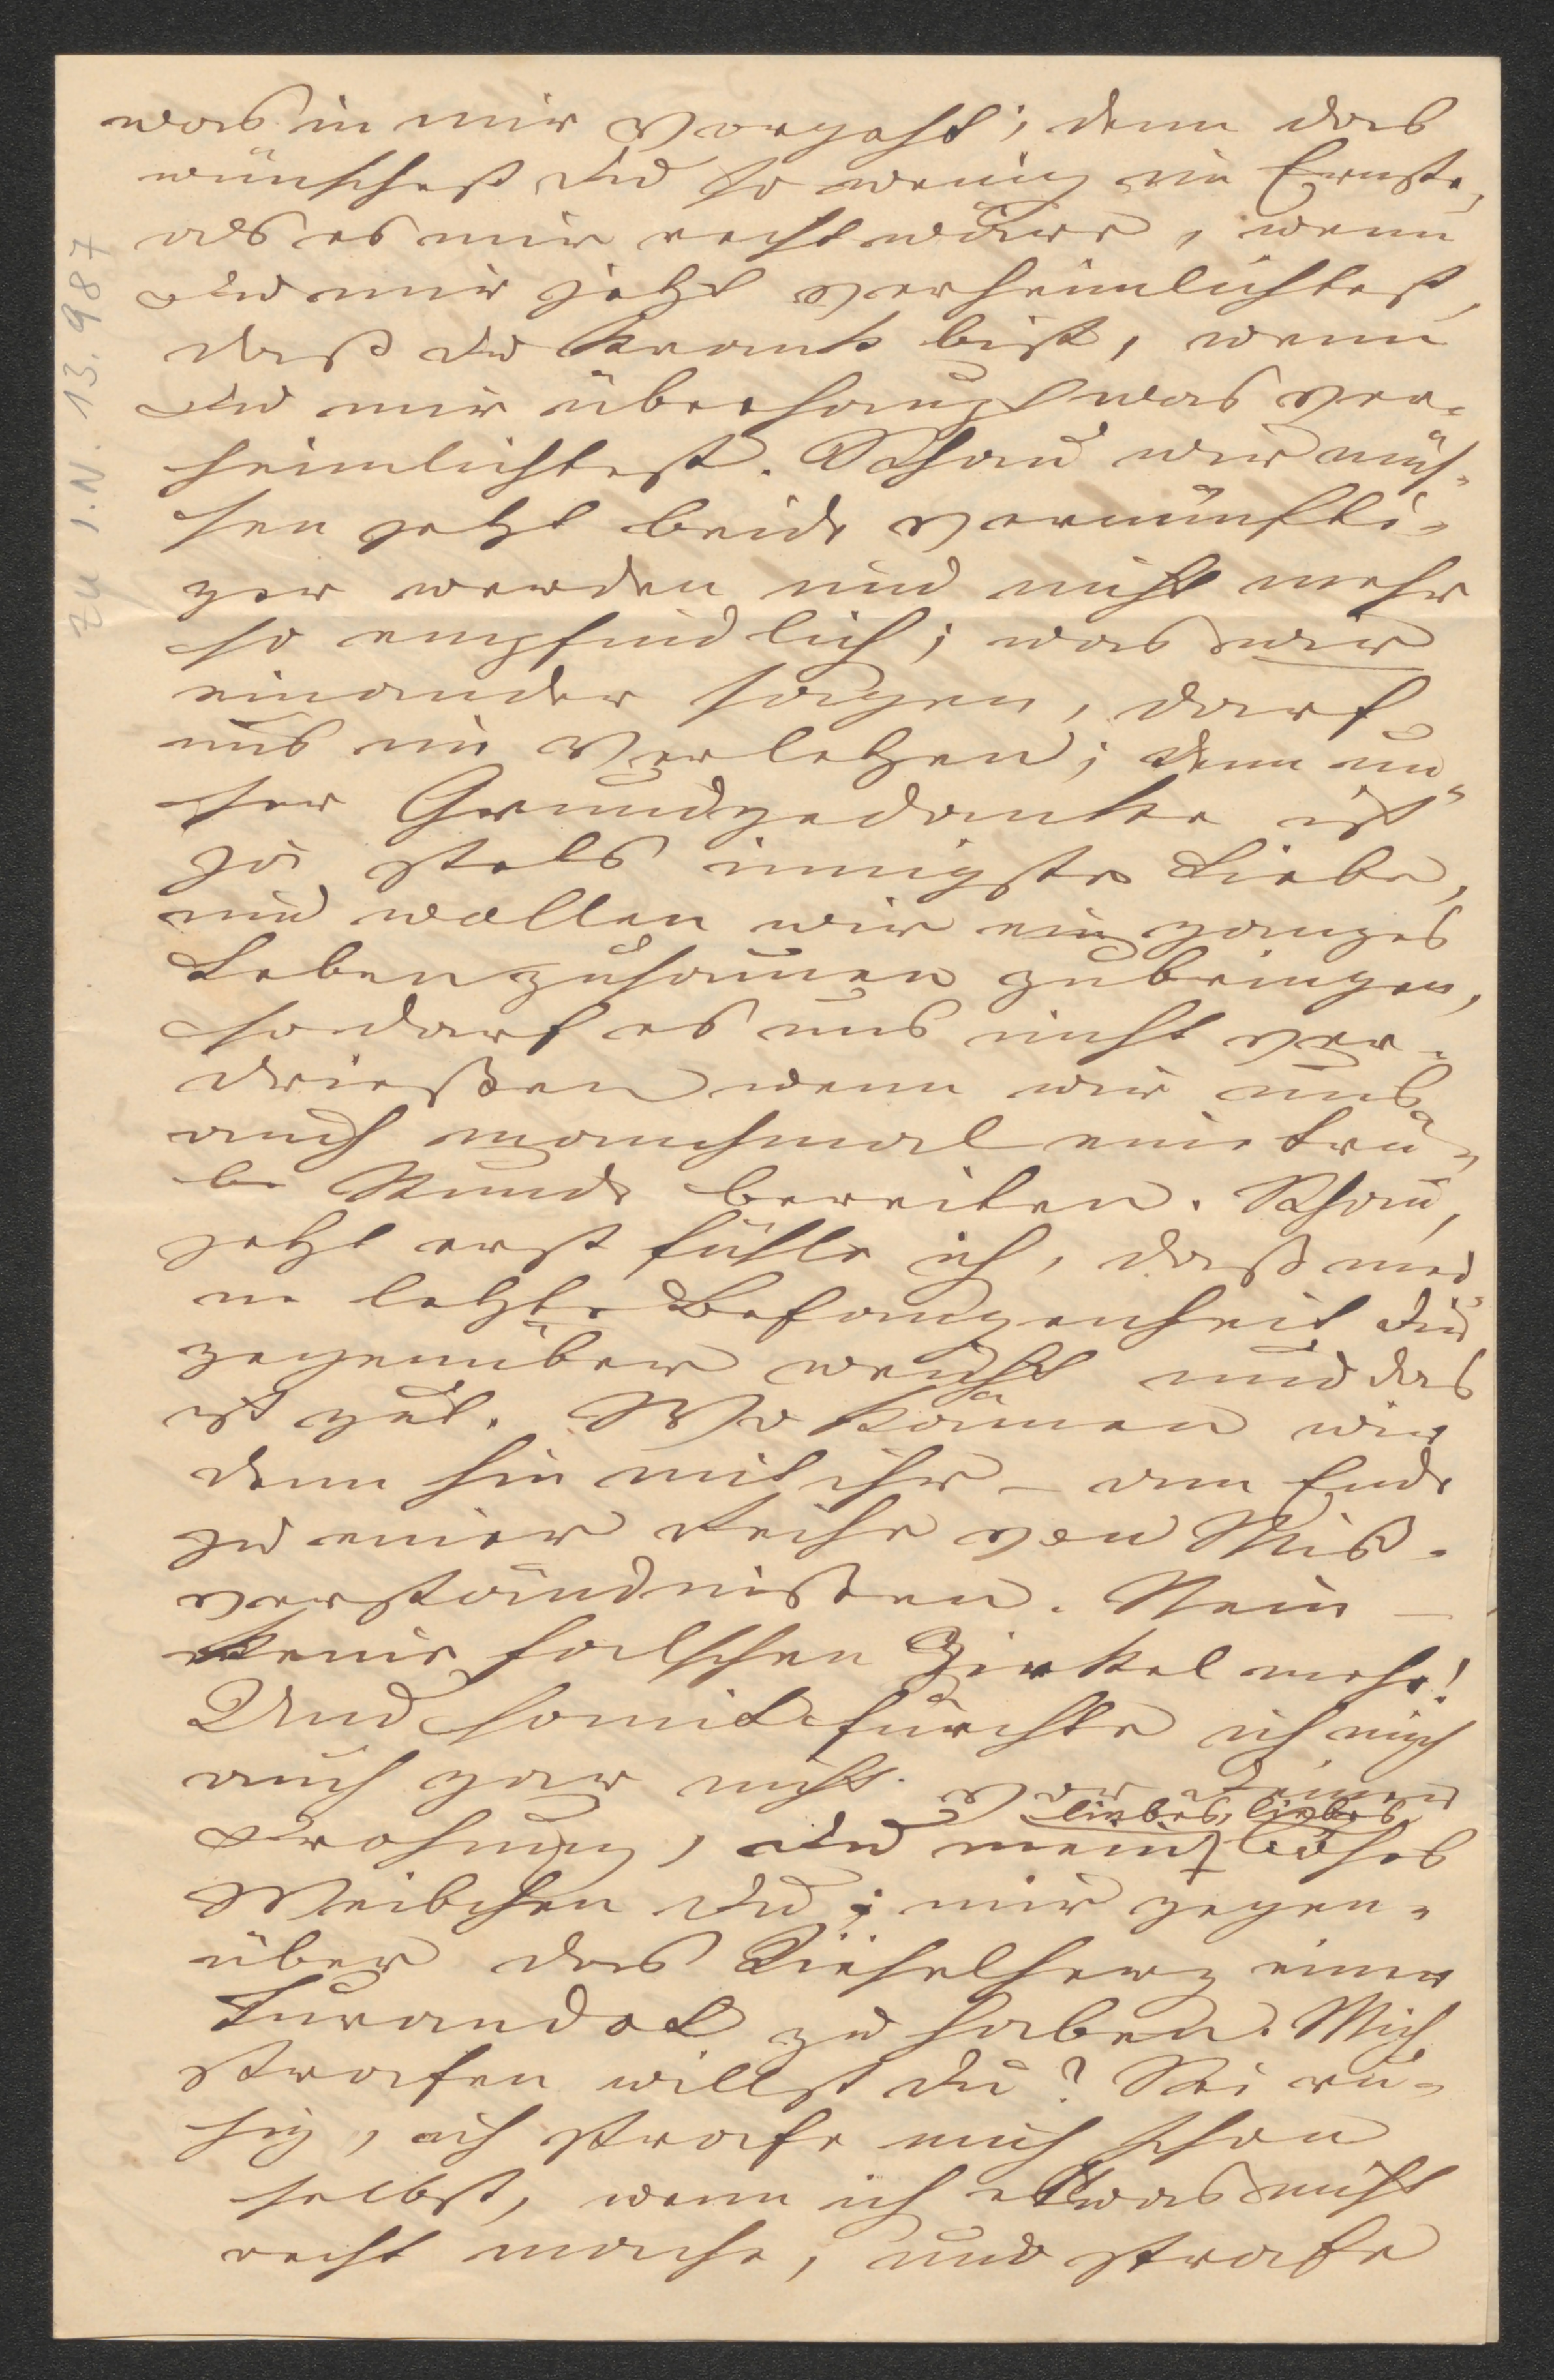 was in mir vorgeht; denn das
wünschest Du so wenig im Ernste,
als es mir recht wäre, wenn
Du mir jetzt verheimlichtest,
daß Du krank bist, wenn
Du mir überhaupt was ver-
heimlichtest. Schau wir müs-
sen jetzt beide vernünfti-
ger werden und nicht mehr
so empfindlich; was wir
einander sagen, darf
uns nie verletzen; denn un-
ser Grundgedanke ist
ja stets innigste Liebe,
und wollen wir ein ganzes
Leben zusam̄en zubringen,
so darf es uns nicht ver-
drießen wenn wir uns
auch manchmal eine trü-
be Stunde bereiten. Schau,
jetzt erst fühle ich, daß mei-
ne letzte Befangenheit Dir
gegenüber weicht und das
ist gut. Wo kämen wir
denn hin mit ihr – am Ende
zu einer Reihe von Miß-
verständnissen. Nein –
keine falschen Zirkel mehr!
Und somit fürchte ich mich
auch gar nicht vor Deiner
liebes, liebes
Drohung, Du mein böses
Weibchen Du; mir gegen-
über das Kieselherz einer
Turandot zu haben. Mich
strafen willst Du? Sei ru-
hig, ich strafe mich schon
selbst, wenn ich etwas nicht
recht mache, und strafe
zu I.N. 13.987